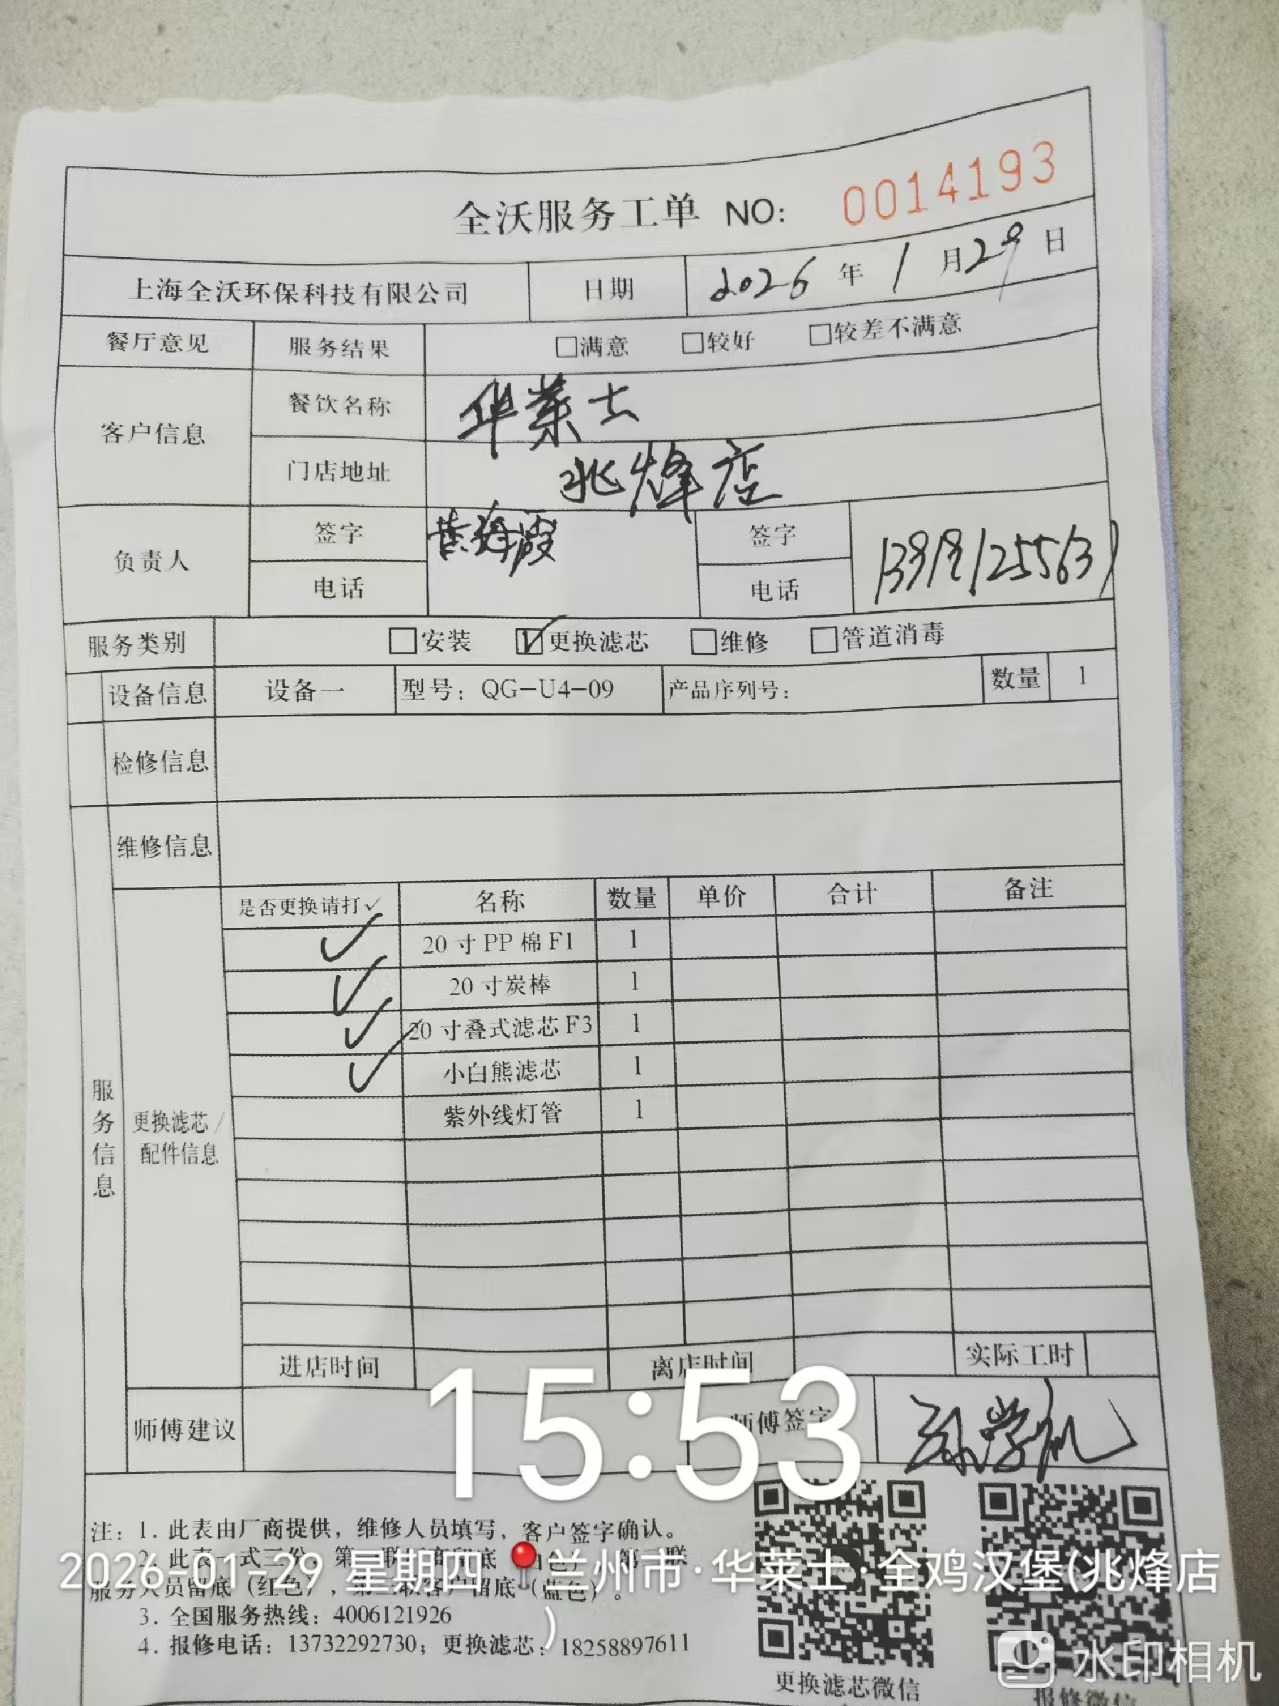 全沃服务工单 NO: 0014193
上海全沃环保科技有限公司 日期 2026 年 1 月 29 日
餐厅意见 服务结果 □满意 □较好 □较差不满意
客户信息 餐饮名称 华莱士
门店地址 兆烽店
负责人 签字 签字
电话 电话
服务类别 □安装 ☑更换滤芯 □维修 □管道消毒
设备信息 设备一 型号: QG-U4-09 产品序列号: 数量 1
检修信息
维修信息
是否更换请打✓ 名称 数量 单价 合计 备注
✓ 20 寸 PP 棉 F1 1
✓ 20 寸炭棒 1
✓ 20 寸叠式滤芯 F3 1
✓ 小白熊滤芯 1
紫外线灯管 1
服务信息
更换滤芯/
配件信息
进店时间 离店时间 实际工时
师傅建议 师傅签字
15:53
注: 1. 此表由厂商提供，维修人员填写，客户签字确认。
2026-01-29 星期四 兰州市·华莱士·全鸡汉堡(兆烽店
)
服务人员留底（红色），
留底（蓝色）。
3. 全国服务热线: 4006121926
4. 报修电话: 13732292730; 更换滤芯: 18258897611
更换滤芯微信
报修微信
水印相机